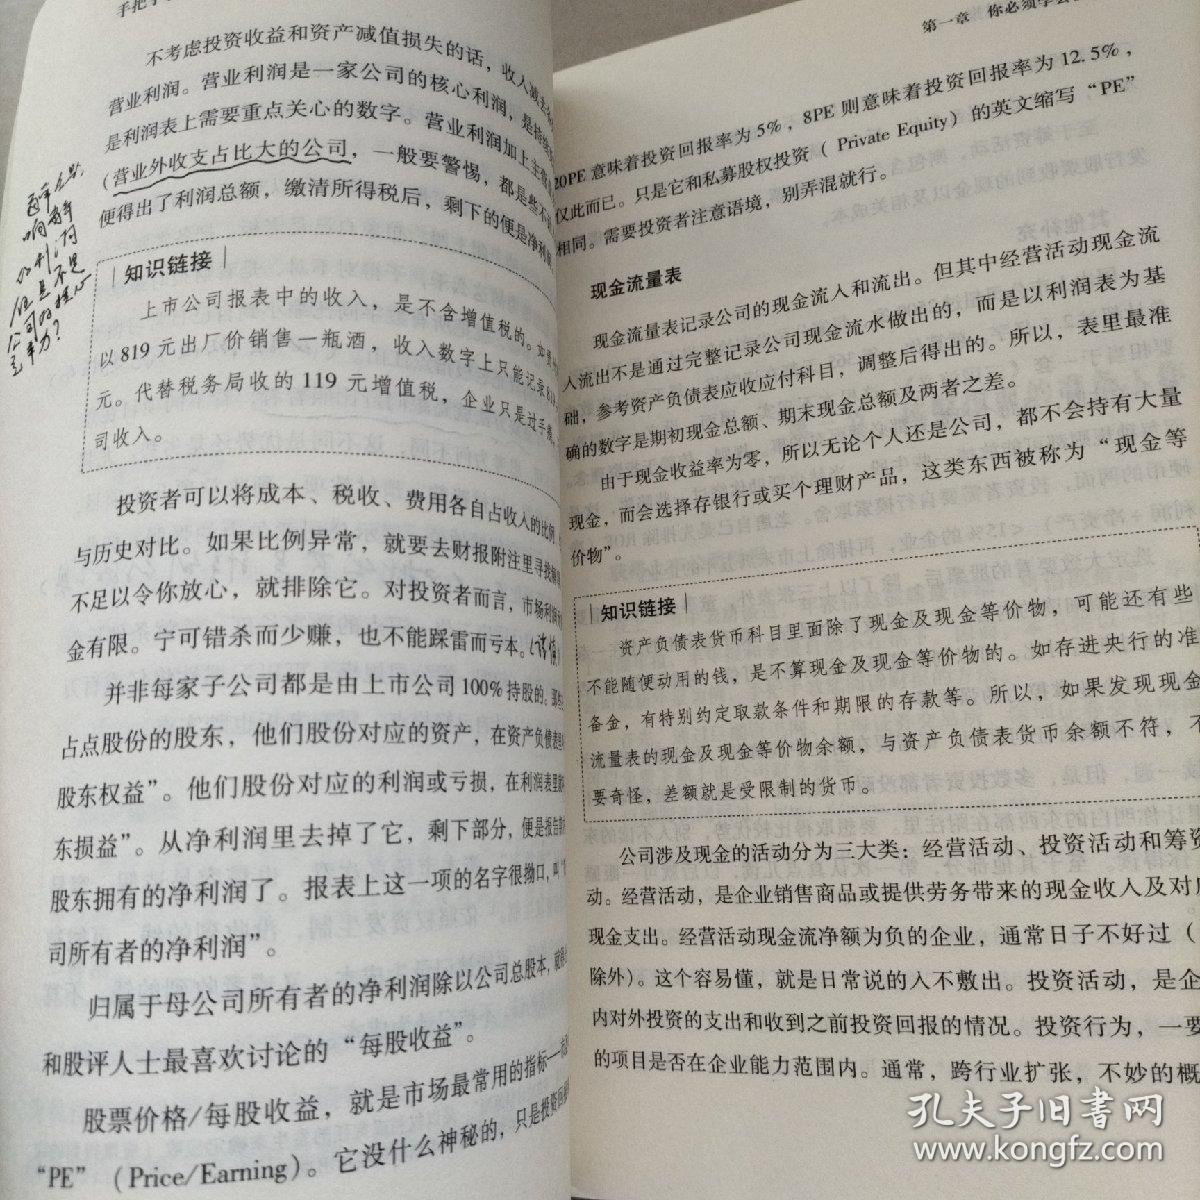 手把手
不考虑投资收益和资产减值损失的话，收入减去
营业利润。营业利润是一家公司的核心利润，是持续
是利润表上需要重点关心的数字。营业利润加上
（营业外收支占比大的公司，一般要警惕，都是些不
便得出了利润总额，缴清所得税后，剩下的便是净利
知识链接
上市公司报表中的收入，是不含增值税的。如果
以819元出厂价销售一瓶酒，收入数字上只能记录
元。代替税务局收的119元增值税，企业只是过手
司收入。
投资者可以将成本、税收、费用各自占收入的比例
与历史对比。如果比例异常，就要去财报附注里寻找解
不足以令你放心，就排除它。对投资者而言，市场利润
金有限。宁可错杀而少赚，也不能踩雷而亏本。
并非每家子公司都是由上市公司100%持股的。那些
占点股份的股东，他们股份对应的资产，在资产负债表里
股东权益”。他们股份对应的利润或亏损，在利润表里
东损益”。从净利润里去掉了它，剩下部分，便是报告
股东拥有的净利润了。报表上这一项的名字很拗口，叫“
司所有者的净利润”。
归属于母公司所有者的净利润除以公司总股本，就得
和股评人士最喜欢讨论的“每股收益”。
股票价格/每股收益，就是市场最常用的指标—市
“PE”（Price/Earning）。它没什么神秘的，只是投资回
第一章 你必须学会
20PE意味着投资回报率为5%，8PE则意味着投资回报率为12.5%，
仅此而已。只是它和私募股权投资（Private Equity）的英文缩写“PE”
相同。需要投资者注意语境，别弄混就行。
现金流量表
现金流量表记录公司的现金流入和流出。但其中经营活动现金流
入流出不是通过完整记录公司现金流水做出的，而是以利润表为基
础，参考资产负债表应收应付科目，调整后得出的。所以，表里最准
确的数字是期初现金总额、期末现金总额及两者之差。
由于现金收益率为零，所以无论个人还是公司，都不会持有大量
现金，而会选择存银行或买个理财产品，这类东西被称为“现金等
价物”。
知识链接
资产负债表货币科目里面除了现金及现金等价物，可能还有些
不能随便动用的钱，是不算现金及现金等价物的。如存进央行的准
备金，有特别约定取款条件和期限的存款等。所以，如果发现现金
流量表的现金及现金等价物余额，与资产负债表货币余额不符，不
要奇怪，差额就是受限制的货币。
公司涉及现金的活动分为三大类：经营活动、投资活动和筹资
动。经营活动，是企业销售商品或提供劳务带来的现金收入及对应
现金支出。经营活动现金流净额为负的企业，通常日子不好过（
除外）。这个容易懂，就是日常说的入不敷出。投资活动，是企
内对外投资的支出和收到之前投资回报的情况。投资行为，一要
的项目是否在企业能力范围内。通常，跨行业扩张，不妙的概
孔夫子旧书网
www.kongfz.com